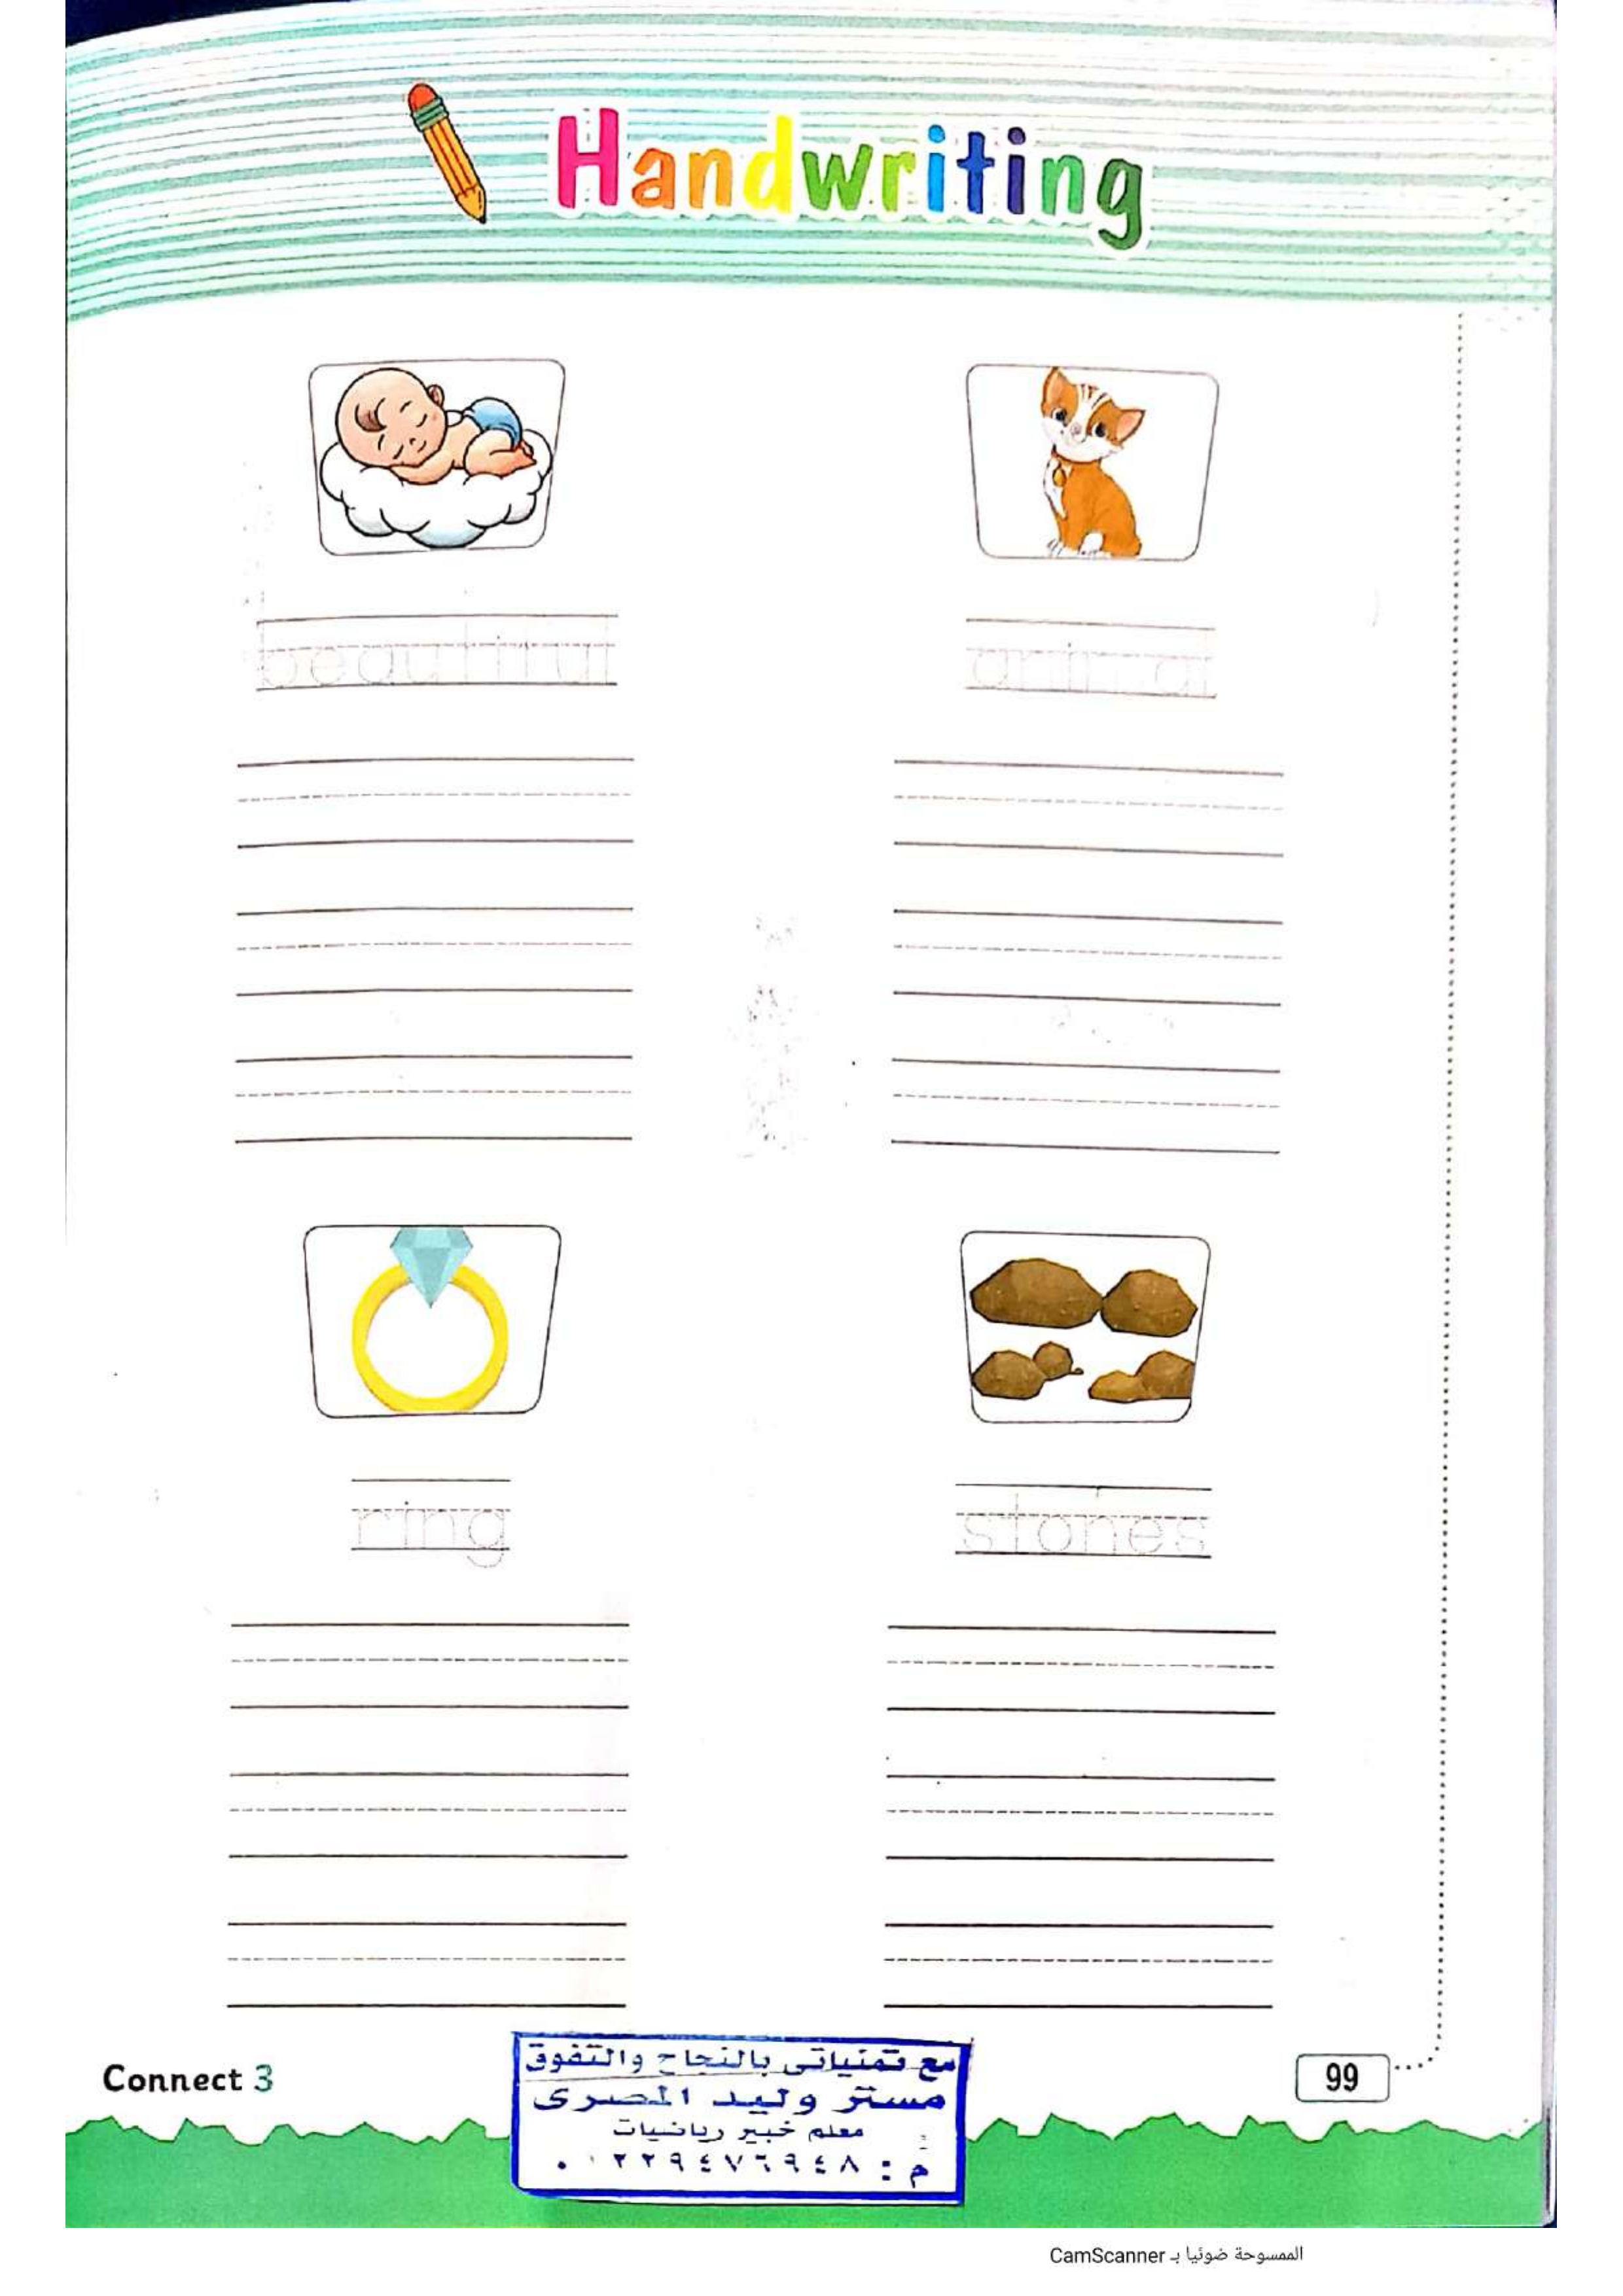 Handwriting
beautiful
animal
ring
stones
Connect 3
مع تمنياتى بالنجاح والتفوق
مستر وليد المصرى
معلم خبير رياضيات
م : ٠١٢٢٩٤٧٦٩٤٨
99
الممسوحة ضوئيا بـ CamScanner